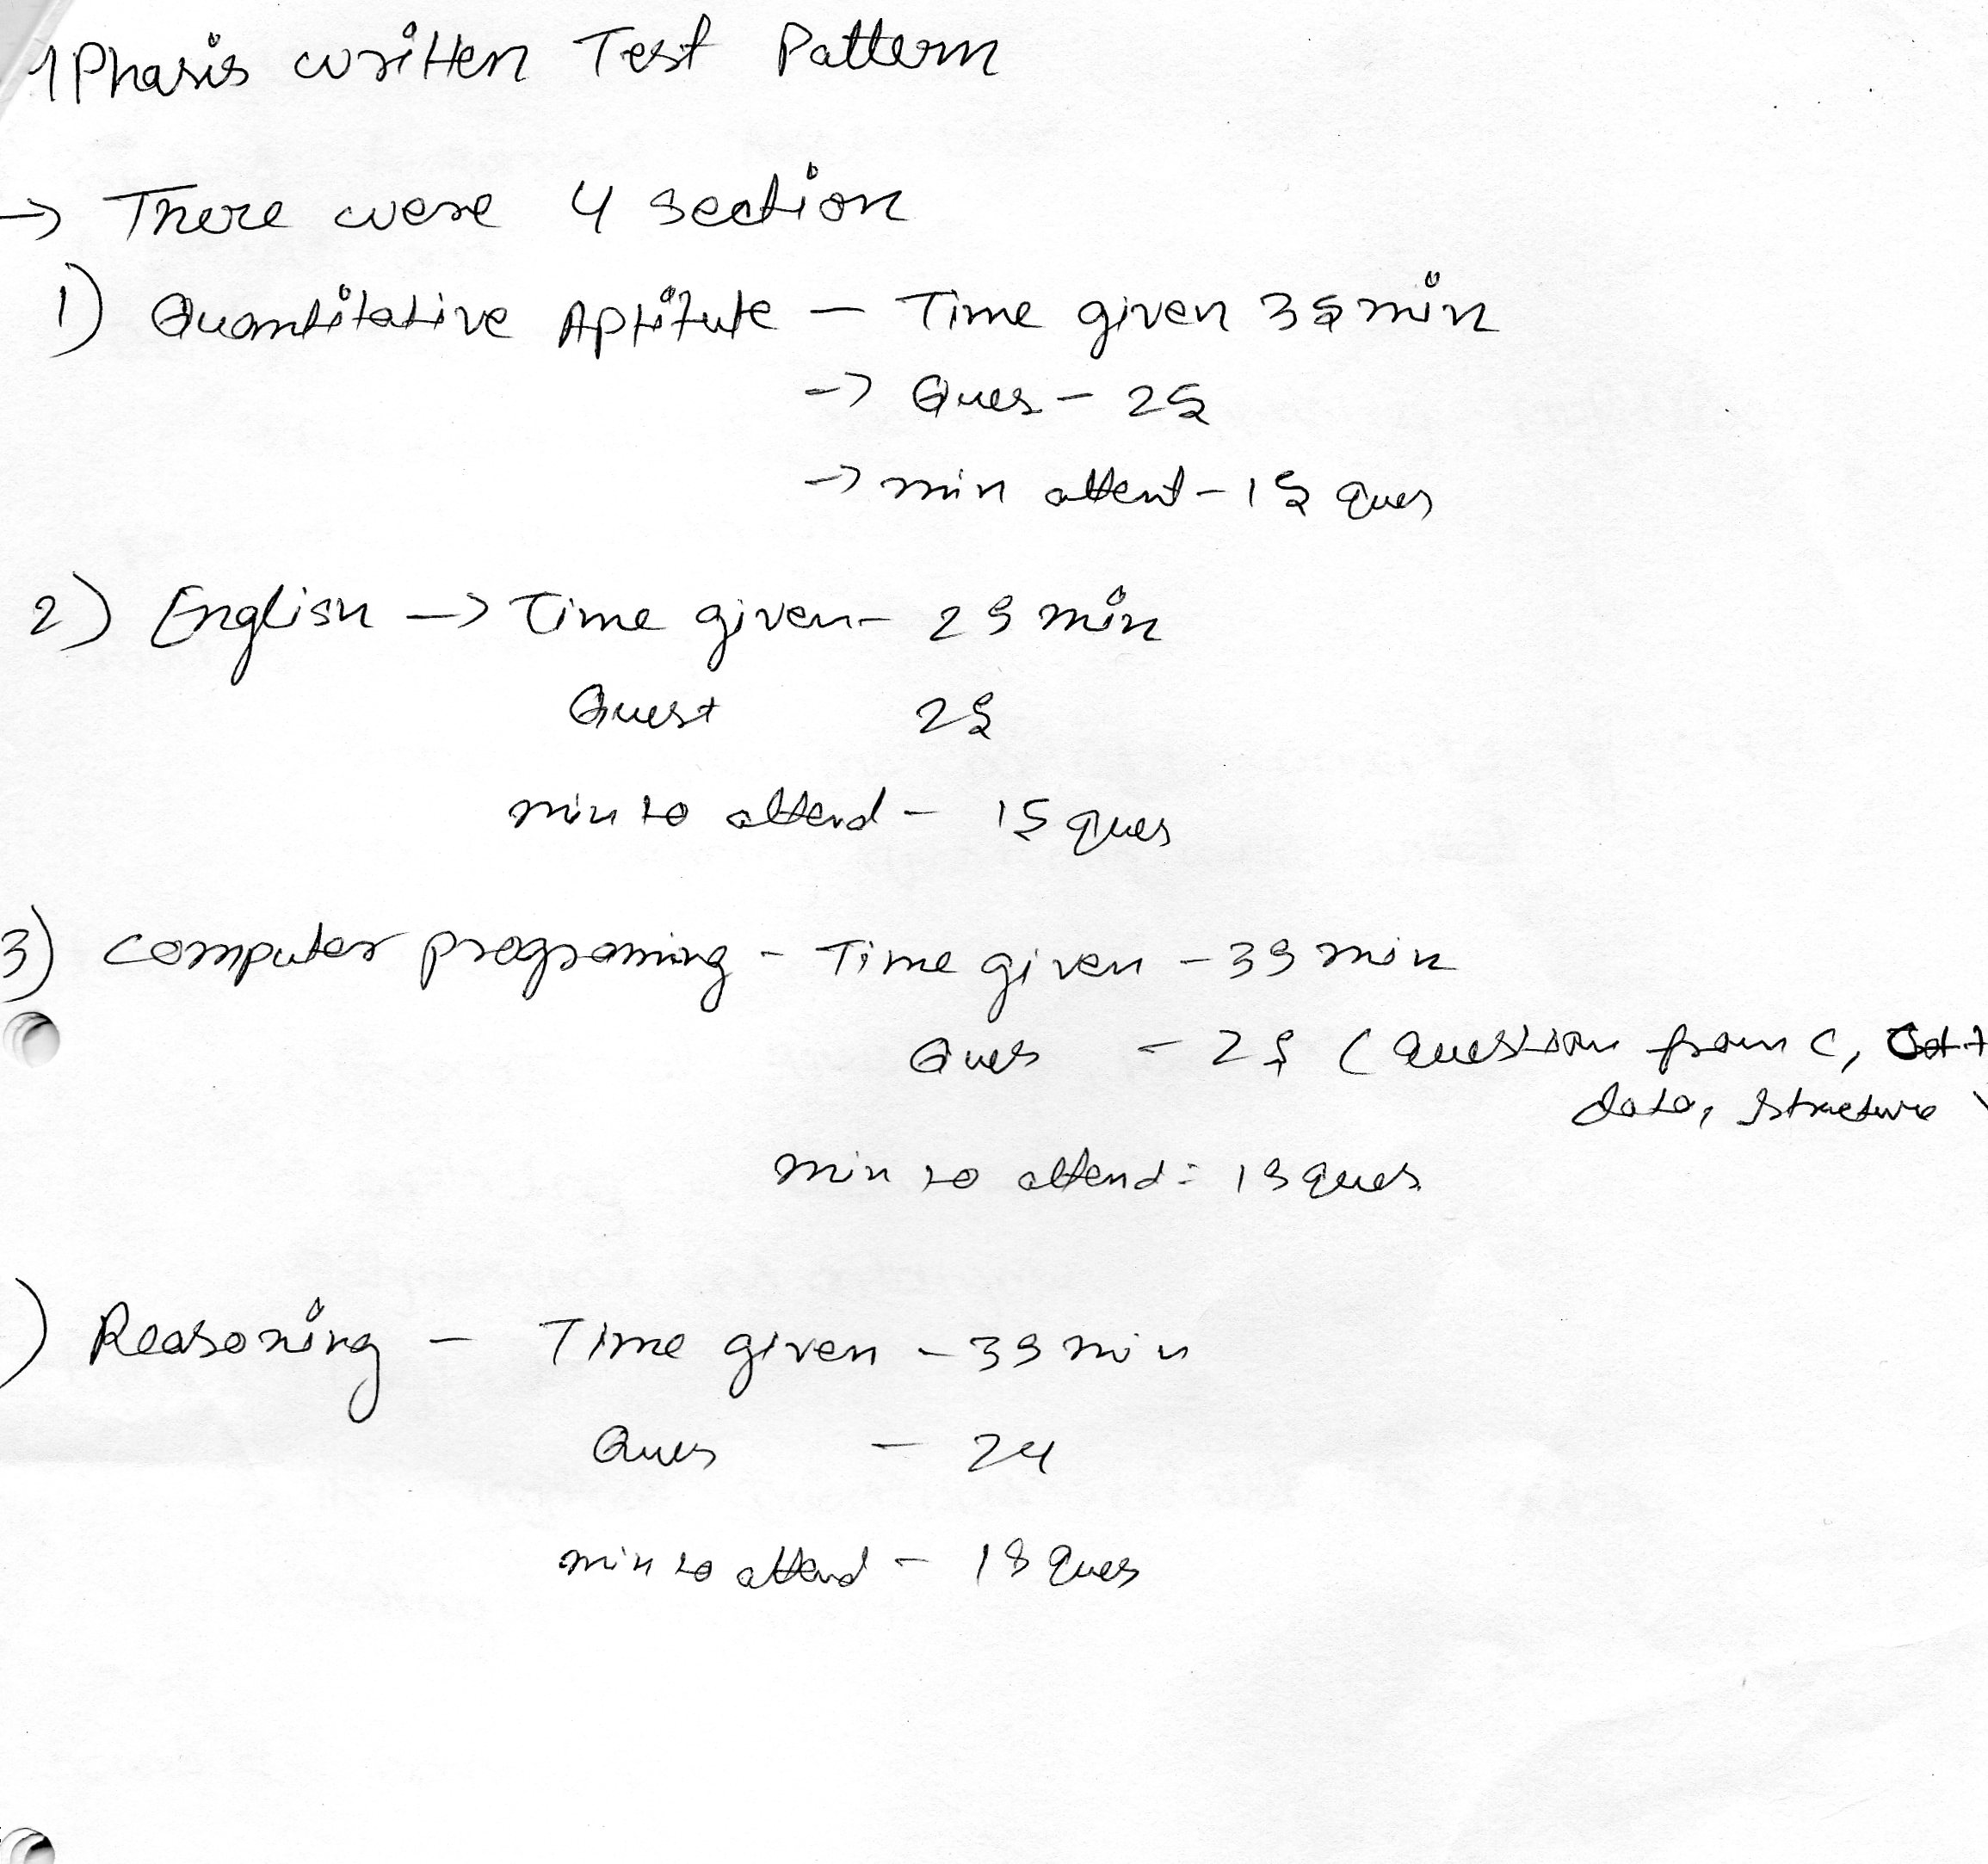 MPhasis written Test Pattern
→ There were 4 section
1) Quantitative Aptitute - Time given 35 min
→ Ques - 25
→ min attent - 15 ques
2) English → Time given - 25 min
Quest 25
min to attend - 15 ques
3) Computer programing - Time given - 35 min
Ques - 25 (Question from C, C++
data, structure
min to attend: 15 ques
) Reasoning - Time given - 35 min
Ques - 24
min to attend - 18 ques